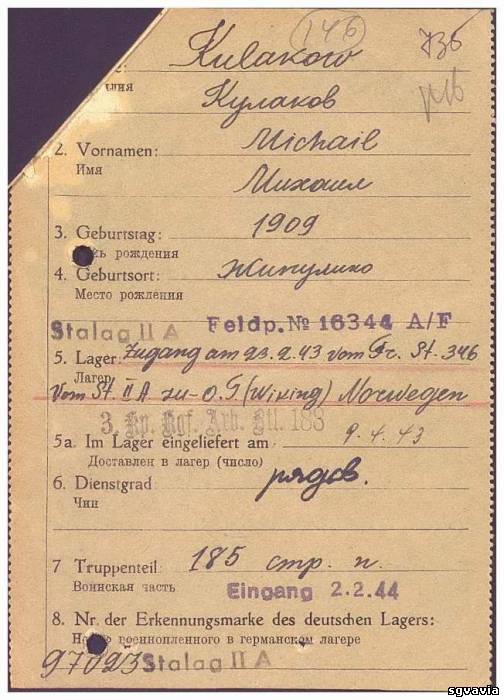 146
736
Kulakow
Кулаков
2. Vornamen: Michail
Имя
Михаил
3. Geburtstag: 1909
рождения
4. Geburtsort: Жипулино
Место рождения
Stalag II A Feldp. № 16344 A/F
5. Lager: Zugang am 23.2.43 vom Fr. St. 346
Лагерь
vom St. II A zu O.T. (Wiking) Norwegen
3. Kp. Kgf. Arb. Btl. 188
5a. Im Lager eingeliefert am 9.4.43
Доставлен в лагерь (число)
6. Dienstgrad рядов.
Чин
7 Truppenteil: 185 стр. п.
Воинская часть Eingang 2.2.44
8. Nr. der Erkennungsmarke des deutschen Lagers:
военнопленного в германском лагере
97023 Stalag II A
sgvavia